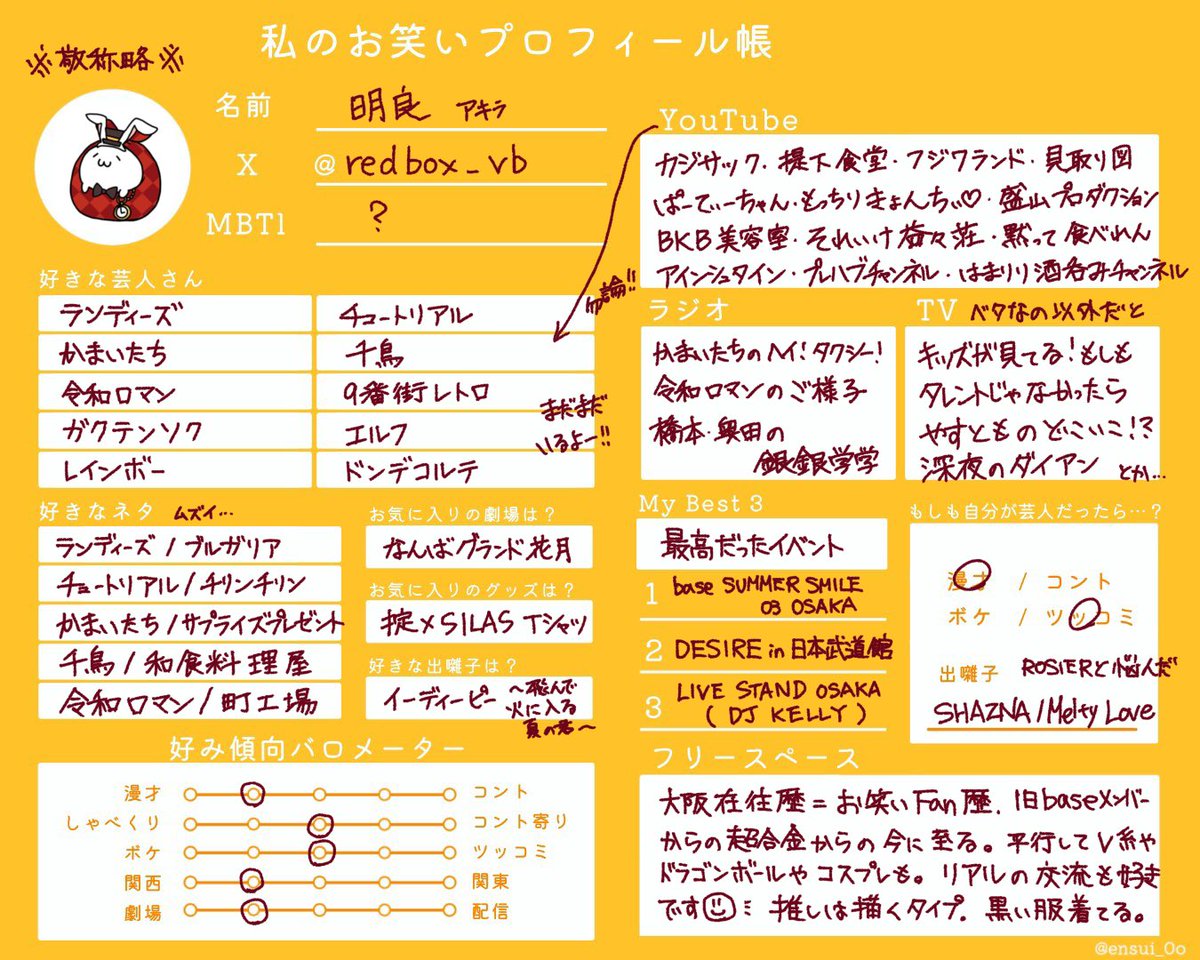 私のお笑いプロフィール帳
※敬称略※
名前 明良 アキラ
X @redbox_vb
MBTI ?
好きな芸人さん
ランディーズ
チュートリアル
かまいたち
千鳥
令和ロマン
9番街レトロ
ガクテンソク
エルフ
レインボー
ドンデコルテ
勿論!!
まだまだ
いるよー!!
YouTube
カジサック・堤下食堂・フジワランド・見取り図
ぱーてぃーちゃん・もっちりきょんちぃ♡・盛山プロダクション
BKB美容室・それいけ益々荘・黙って食べれん
アインシュタイン・プレハブチャンネル・はまりり酒呑みチャンネル
ラジオ
かまいたちのヘイ!タクシー!
令和ロマンのご様子
橋本・奥田の
銀銀学学
TV ベタなの以外だと
キッズが見てる!もしも
タレントじゃなかったら
やすとものどこいこ!?
深夜のダイアン とか…
好きなネタ ムズイ…
ランディーズ/ブルガリア
チュートリアル/チリンチリン
かまいたち/サプライズプレゼント
千鳥/和食料理屋
令和ロマン/町工場
お気に入りの劇場は?
なんばグランド花月
お気に入りのグッズは?
掟×SILAS Tシャツ
好きな出囃子は?
イーディーピー ~飛んで
火に入る
夏の君~
My Best 3
最高だったイベント
1 base SUMMER SMILE
03 OSAKA
2 DESIRE in 日本武道館
3 LIVE STAND OSAKA
(DJ KELLY)
もしも自分が芸人だったら…?
漫才 / コント
ボケ / ツッコミ
出囃子 ROSIERと悩んだ
SHAZNA/Melty Love
好み傾向バロメーター
漫才 コント
しゃべくり コント寄り
ボケ ツッコミ
関西 関東
劇場 配信
フリースペース
大阪在住歴=お笑いFan歴.旧baseメンバー
からの超合金からの今に至る。平行してV系や
ドラゴンボールやコスプレも。リアルの交流も好き
です 推しは描くタイプ.黒い服着てる。
@ensui_0o